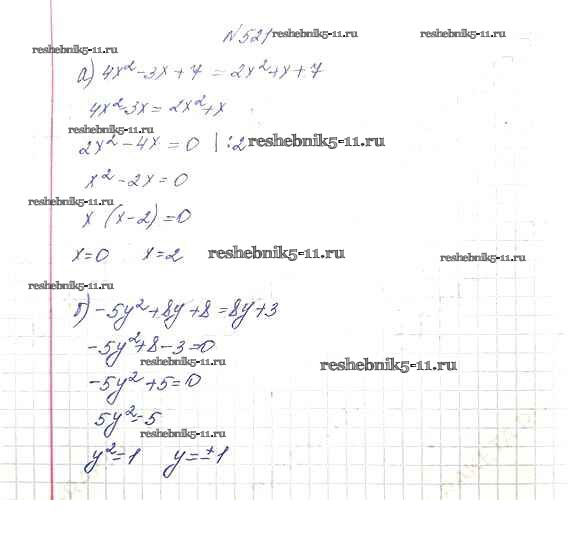 №521 reshebnik5-11.ru reshebnik5-11.ru
reshebnik5-11.ru
а) 4x² - 3x + 7 = 2x² + x + 7
4x² - 3x = 2x² + x
reshebnik5-11.ru
2x² - 4x = 0 | :2 reshebnik5-11.ru
x² - 2x = 0
reshebnik5-11.ru
x (x - 2) = 0
x = 0 x = 2 reshebnik5-11.ru reshebnik5-11.ru
reshebnik5-11.ru
б) -5y² + 8y + 8 = 8y + 3
-5y² + 8 - 3 = 0
reshebnik5-11.ru reshebnik5-11.ru
-5y² + 5 = 0
5y² = 5
reshebnik5-11.ru
y² = 1 y = ±1